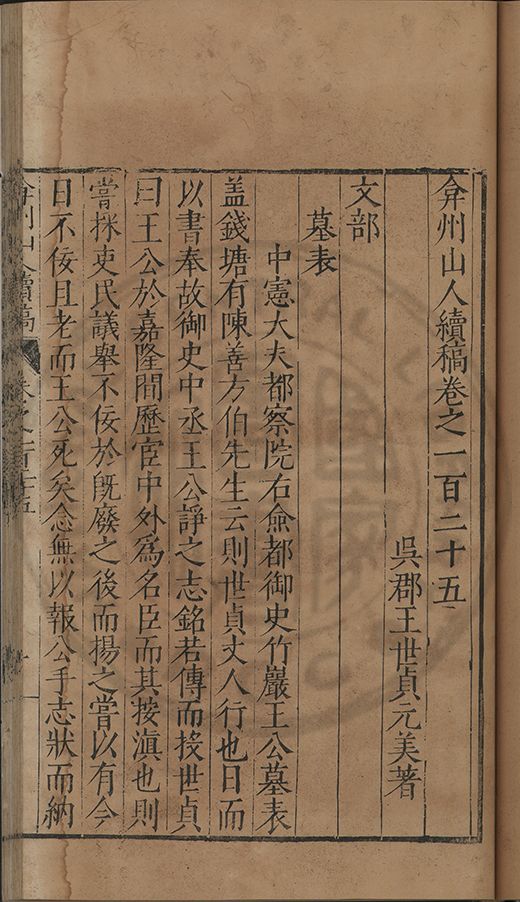 弇州山人續稿卷之一百二十五
吳郡王世貞元美著
文部
墓表
中憲大夫都察院右僉都御史竹巖王公墓表
盖錢塘有陳善方伯先生云則世貞丈人行也日而
以書奉故御史中丞王公諍之志銘若傳而授世貞
曰王公於嘉隆間歷宦中外爲名臣而其按滇也則
嘗採吏民議舉不佞於旣廢之後而揚之嘗以有今
日不佞且老而王公死矣念無以報公手志狀而納
弇州山人續稿 卷之一百二十五 一